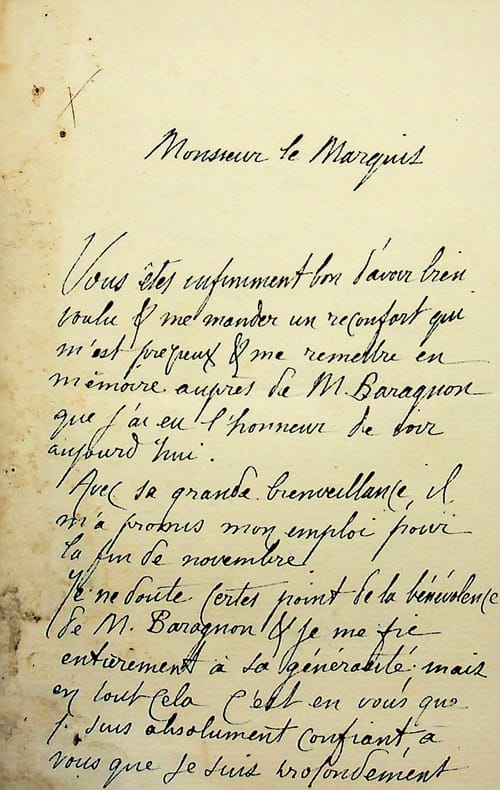 Monsieur le Marquis
Vous êtes infiniment bon d'avoir bien
voulu & me mander un reconfort qui
m'est précieux & me remettre en
mémoire auprès de M. Baragnon
que j'ai eu l'honneur de voir
aujourd'hui.
Avec sa grande bienveillance, il
m'a promis mon emploi pour
la fin de novembre
Je ne doute certes point de la bénévolence
de M. Baragnon & je me fie
entièrement à sa générosité; mais
en tout cela c'est en vous que
je suis absolument confiant, à
vous que je suis profondément